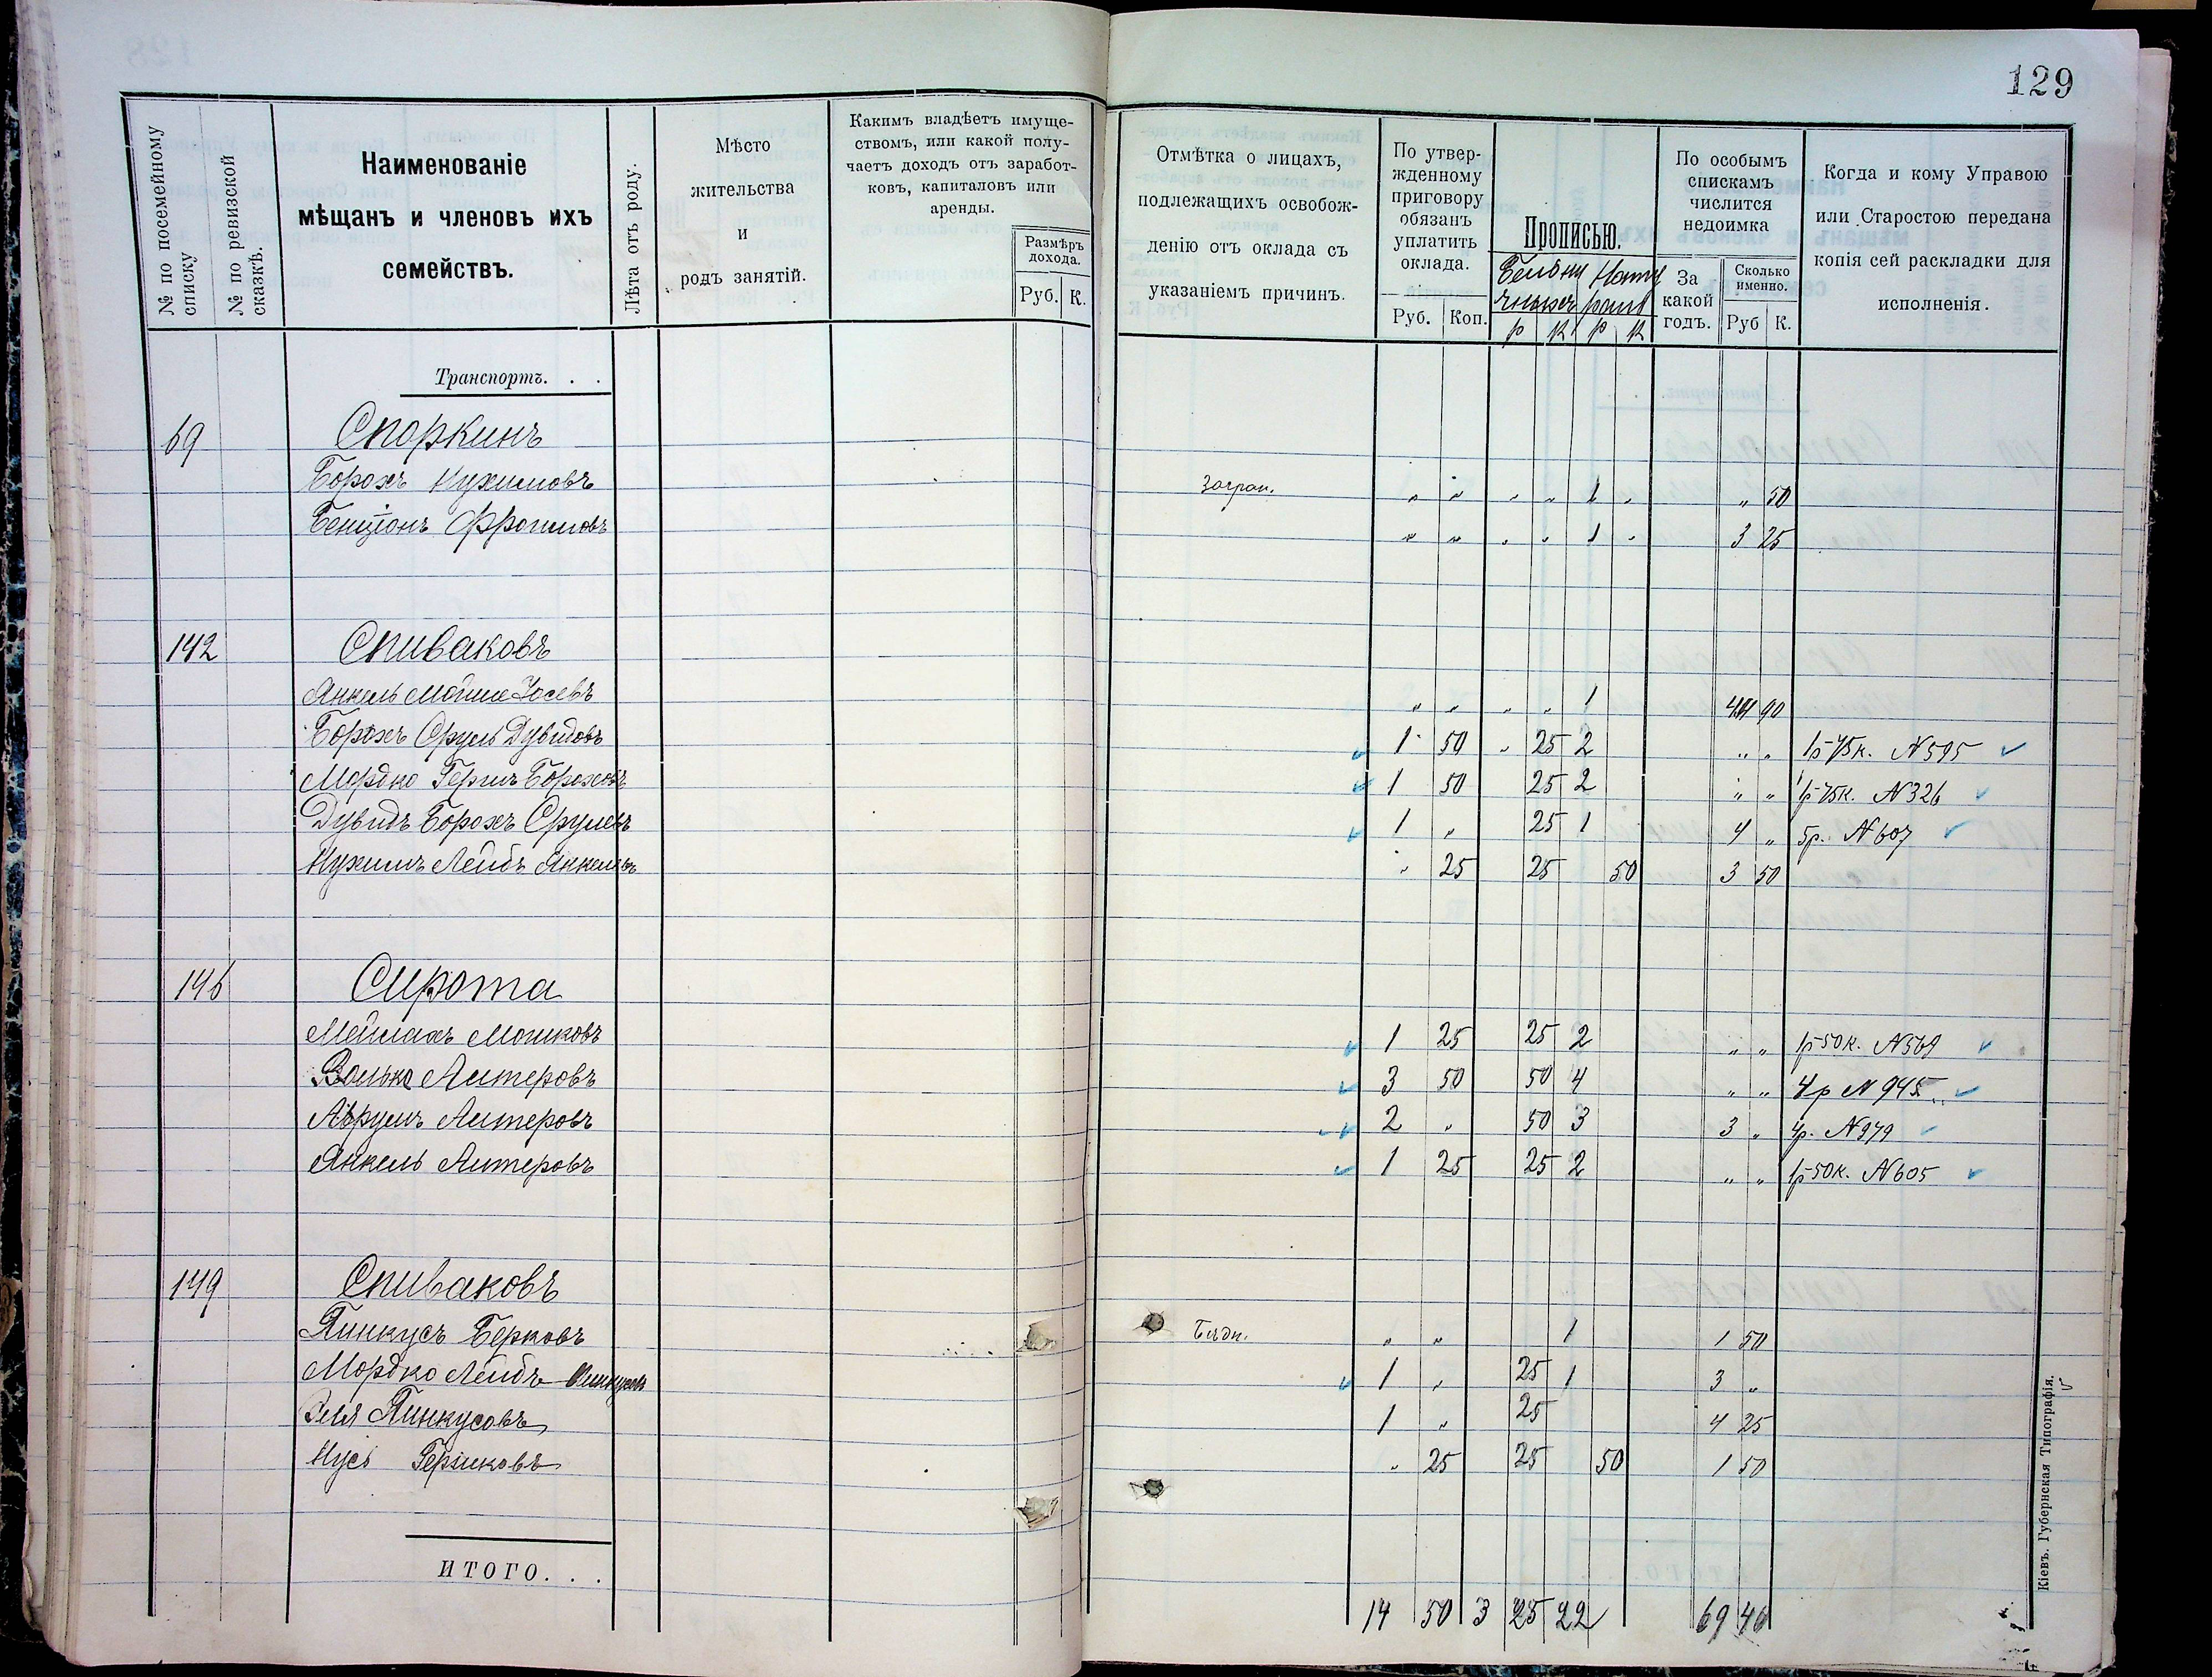 129
№ по посемейному списку
№ по ревизской сказкѣ.
Наименованіе
мѣщанъ и членовъ ихъ
семействъ.
Лѣта отъ роду.
Мѣсто
жительства
и
родъ занятій.
Какимъ владѣетъ имуще-
ствомъ, или какой полу-
чаетъ доходъ отъ заработ-
ковъ, капиталовъ или
аренды.
Размѣръ
дохода.
Руб. К.
Отмѣтка о лицахъ,
подлежащихъ освобож-
денію отъ оклада съ
указаніемъ причинъ.
По утвер-
жденному
приговору
обязанъ
уплатить
оклада.
Руб. Коп.
Прописью.
р К р К
По особымъ
спискамъ
числится
недоимка
За
какой
годъ.
Сколько
именно.
Руб К.
Когда и кому Управою
или Старостою передана
копія сей раскладки для
исполненія.
Транспортъ. . .
69 Споркинъ
Борохъ Нухимовъ Загран. " " " " 1 " " 50
Бенціонъ Фроимовъ " " " " 1 " 3 25
142 Спиваковъ
Янкель Мошие Іосевъ " " " " 1 90
Борохъ Сруль Дувидовъ 1 50 " 25 2 " " 1р 75к. N 595
Мордко Гершъ Бороховъ 1 50 25 2 " " 1р 75к. N 326
Дувидъ Борохъ Срулевъ 1 " 25 1 4 " 5р. N 607
Нухимъ Лейбъ Янкелевъ " 25 25 50 3 50
146 Сирота
Мейлахъ Мошковъ 1 25 25 2 " " 1р 50к. N 569
Волько Алтеровъ 3 50 50 4 " " 4р N 945
Аврумъ Алтеровъ 2 " 50 3 3 " 4р. N 979
Янкель Алтеровъ 1 25 25 2 " " 1р 50к. N 605
149 Спиваковъ
Пинкусъ Берковъ Бѣдн. " " 1 1 50
Мордко Лейбъ Пинкусов 1 " 25 1 3 "
Эля Пинкусовъ 1 " 25 4 25
Нусі Гершковъ " 25 25 50 1 50
ИТОГО. . .
14 50 3 25 22 69 40
Кіевъ. Губернская Типографія.